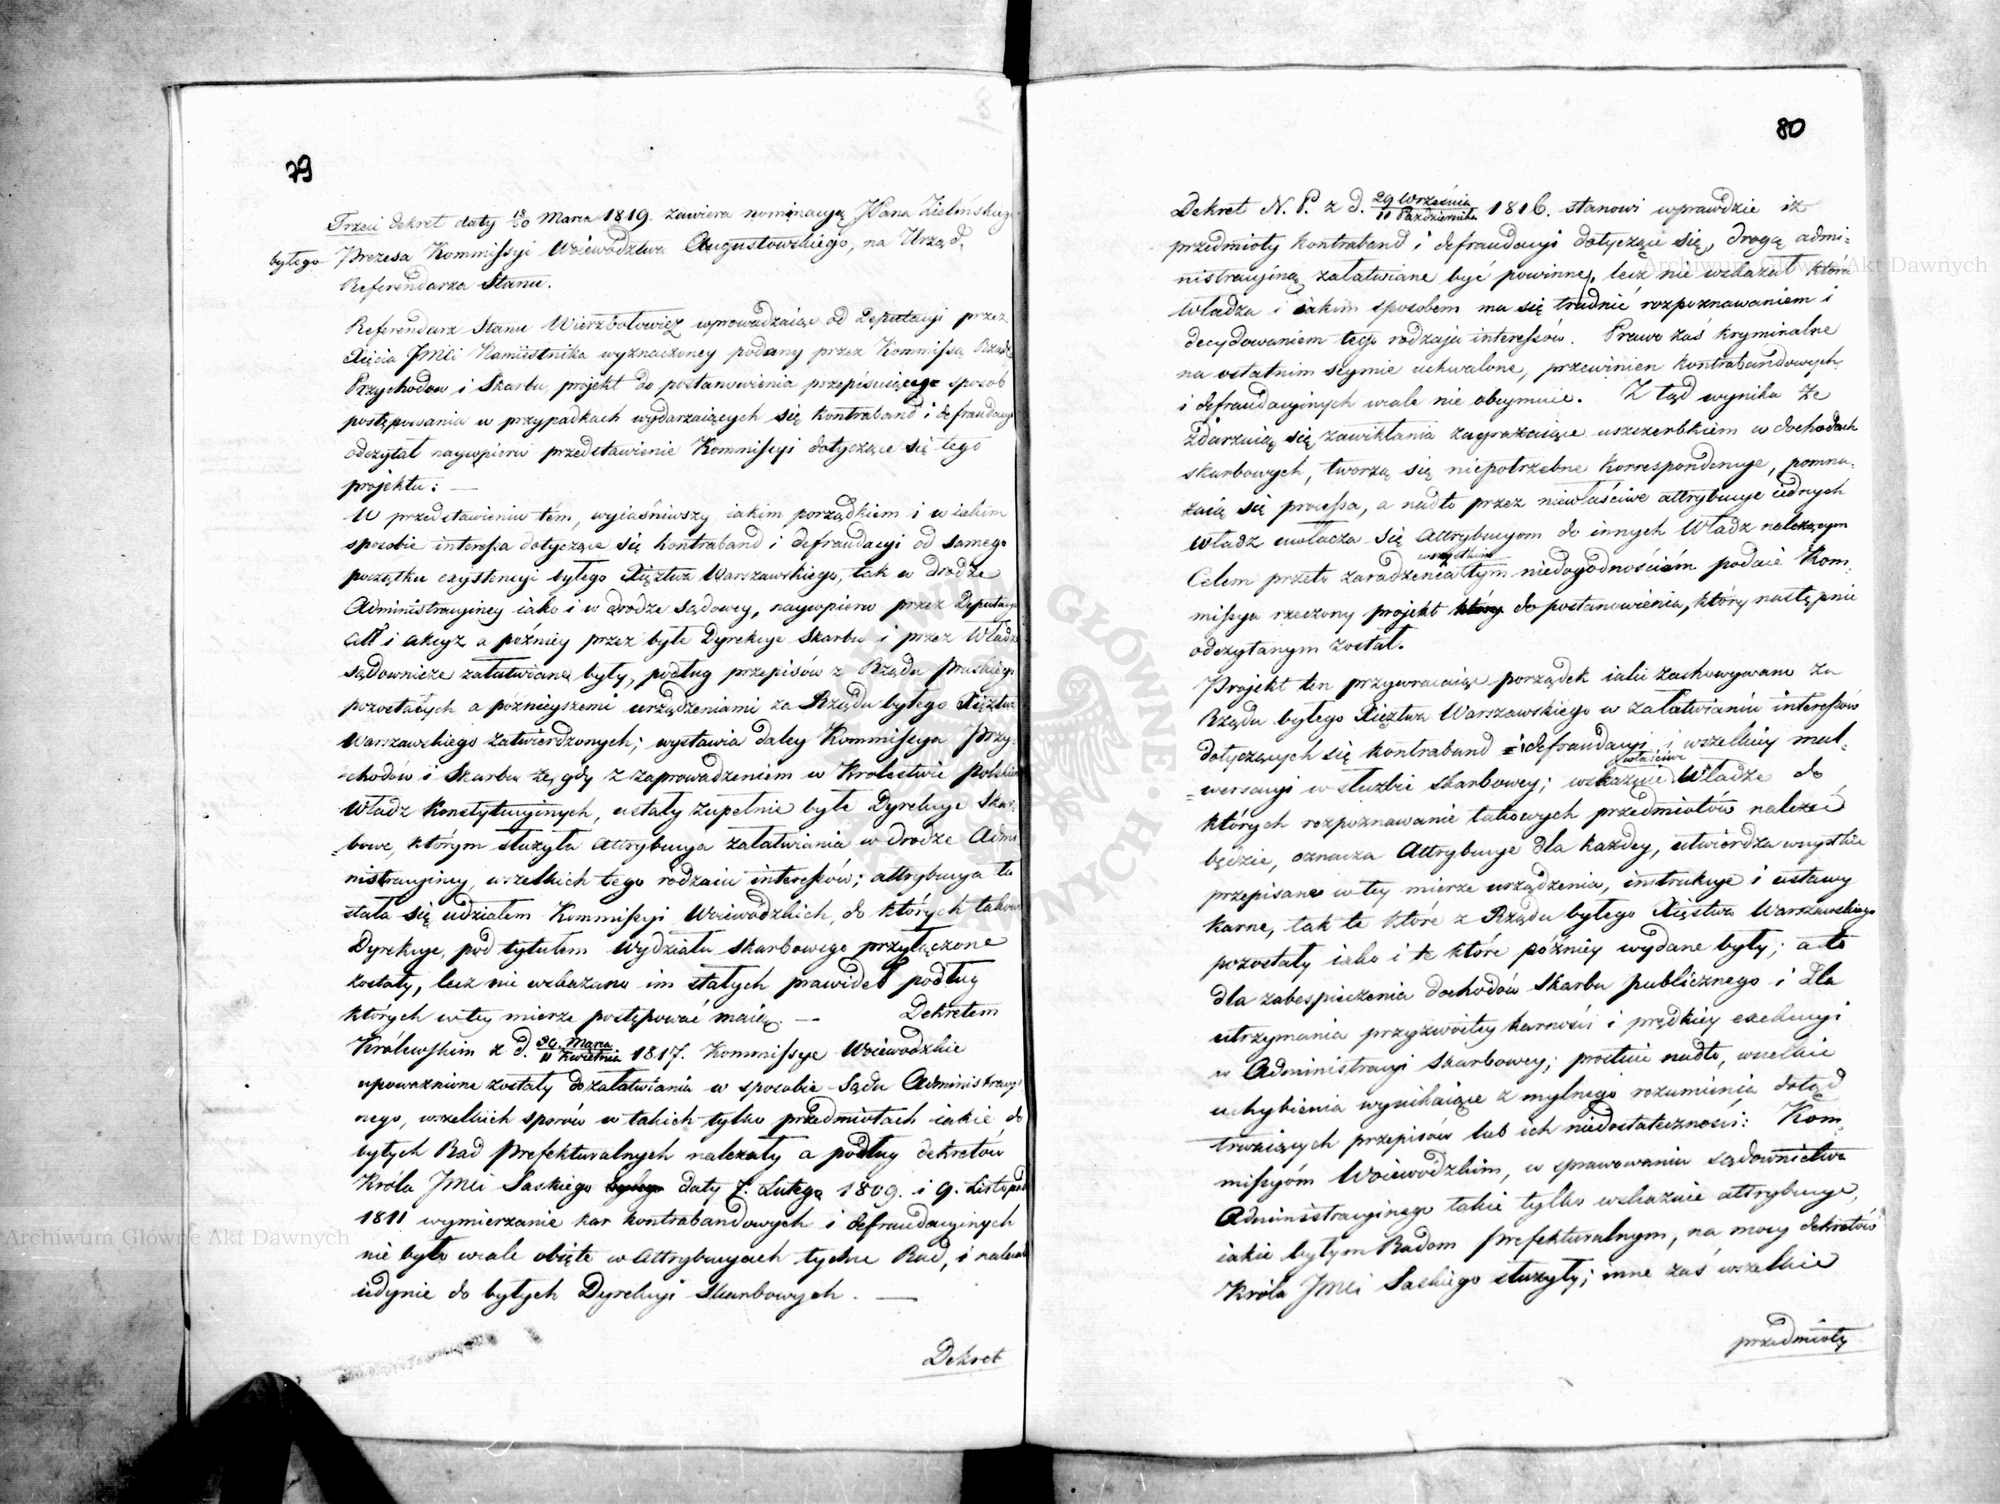 79
Trzeci dekret daty 18/30 Marca 1819. zawiera nominacyą JPana Zielińskiego
byłego Prezesa Kommissyi Woiewództwa Augustowskiego, na Urząd
Referendarza Stanu.
Referendarz Stanu Wierzbołowicz wprowadzaiąc od Deputacyi przez
Xięcia JMci Namiestnika wyznaczoney podany przez Kommissą Rząd:
Przychodow i Skarbu, projekt do postanowienia przepisuiącego sposob
postępowania w przypadkach wydarzaiących się kontraband i defraudacyi
odczytał naypierw przedstawienie Kommissyi dotyczące się tego
projektu: —
W przedstawieniu tem, wyiaśniwszy iakim porządkiem i w iakim
sposobie interessa dotyczące się kontraband i defraudacyi od samego
początku exystencyi byłego Xięztwa Warszawskiego, tak w drodze
Administracyiney iako i w drodze sądowey, naypierw przez Deputacye
Ceł i akcyz a pożniey przez byłe Dyrekcye Skarbu i przez Władze
sądownicze załatwiane były, podług przepisów z Rządu pruskiego
pozostałych a pożnieyszemi urządzeniami za Rządu byłego Xięztwa
Warszawskiego zatwierdzonych; wystawia daley Kommissya Przy-
chodów i Skarbu że, gdy z zaprowadzeniem w Krolestwie polskiem
Władz Konstytucyinych, ustały zupełnie byłe Dyrekcye Skar-
bowe, którym służyła Attrybucya załatwiania w drodze Admi-
nistracyiney, wszelkich tego rodzaiu interessów; attrybucya ta
stała się udziałem Kommissyi Woiewodzkich, do których takowe
Dyrekcye, pod tytułem Wydziału skarbowego przyłączone
zostały, lecz nie wskazano im stałych prawideł podług
których w tey mierze postępować maią. — Dekretem
Królewskim z d. 30. Marca/11 Kwietnia 1817. Kommissye Woiewodzkie
upoważnione zostały do załatwiania w sposobie Sądu Administracyi-
nego, wszelkich sporów w takich tylko przedmiotach iakie do
byłych Rad Prefekturalnych należały a podług dekretów
Króla JMci Saskiego daty 7. Lutego 1809. i 9. Listopada
1811 wymierzanie kar kontrabandowych i defraudacyinych
nie było wcale obięte w Attrybucyach tychże Rad, i należało
iedynie do byłych Dyrekcyi Skarbowych. —
Dekret
80
Dekret N. P. z d. 29 Września/11 Października 1816. stanowi wprawdzie iż
przedmioty kontraband i defraudacyi dotyczące się, drogą admi-
nistracyiną załatwiane być powinne, lecz nie wskazał która
władza i iakim sposobem ma się trudnić rozpoznawaniem i
decydowaniem tego rodzaiu interessów. Prawo zaś kryminalne
na ostatnim seymie uchwalone, przewinien kontrabandowych
i defraudacyinych wcale nie obeymuie. Z tąd wynika że
zdarzaią się zawikłania zagrażaiące uszczerbkiem w dochodach
skarbowych, tworzą się niepotrzebne korrespondencye, pomna-
żaią się processa, a nadto przez niewłaściwe attrybucye iednych
Władz uwłacza się Attrybucyom do innych Władz należącym
Celem przeto zaradzenia wszystkim tym niedogodnościom podaie Kom-
missya rzeczony projekt do postanowienia, który następnie
odczytanym został.
Projekt ten przywracaiąc porządek iaki zachowywano za
Rządu byłego Xięztwa Warszawskiego w załatwianiu interessów
dotyczących się kontraband i defraudacyi i wszelkiey mal-
wersacyi w służbie Skarbowey; wskazuie właściwe Władze do
których rozpoznawanie takowych przedmiotów należeć
będzie, oznacza Attrybucye dla każdey, utwierdza wszystkie
przepisane w tey mierze urządzenia, instrukcye i ustawy
karne, tak te które z Rządu byłego Xięstwa Warszawskiego
pozostały iako i te które pózniey wydane były; a to
dla zabespieczenia dochodów Skarbu publicznego i dla
utrzymania przyzwoitey karności i prędkiey exekucyi
w Administracyi Skarbowey; prostuie nadto, wszelkie
uchybienia wynikaiące z mylnego rozumienia dotąd
trwaiących przepisów lub ich niedostateczności: Kom-
missyóm Woiewodzkim, w sprawowaniu sądownictwa
Administracyinego takie tylko wskazuie attrybucye,
iakie byłym Radom Prefekturalnym, na mocy dekretów
Króla JMci Saskiego służyły; inne zaś wszelkie
przedmioty
Archiwum Główne Akt Dawnych
Archiwum Główne Akt Dawnych